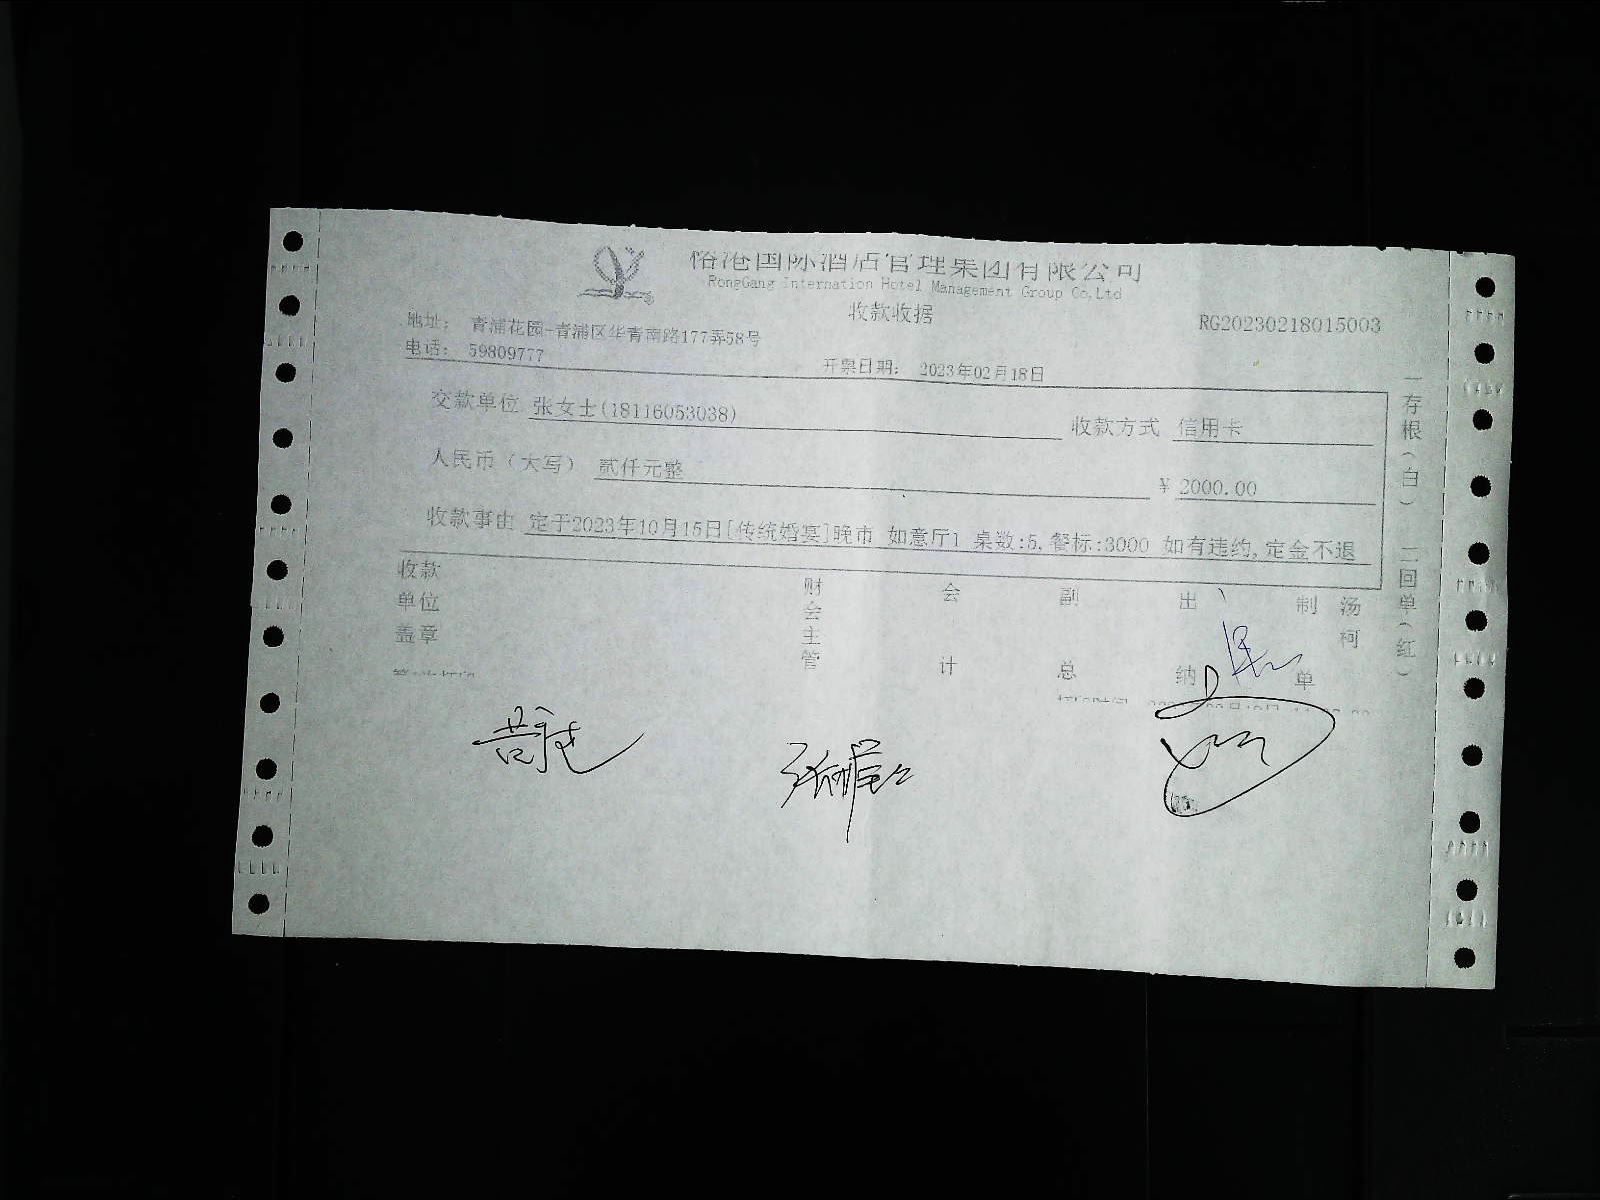 榕港国际酒店管理集团有限公司
RongGang Internation Hotel Management Group Co,Ltd
收款收据
RG20230218015003
地址： 青浦花园-青浦区华青南路177弄58号
电话： 59809777
开票日期： 2023年02月18日
交款单位 张女士(18116053038) 收款方式 信用卡
人民币（大写） 贰仟元整 ￥2000.00
收款事由 定于2023年10月15日[传统婚宴]晚市 如意厅1 桌数:5,餐标:3000 如有违约,定金不退
收款单位盖章
财会主管
会计
副总
出纳
制单
汤柯
一存根（白） 二回单（红）